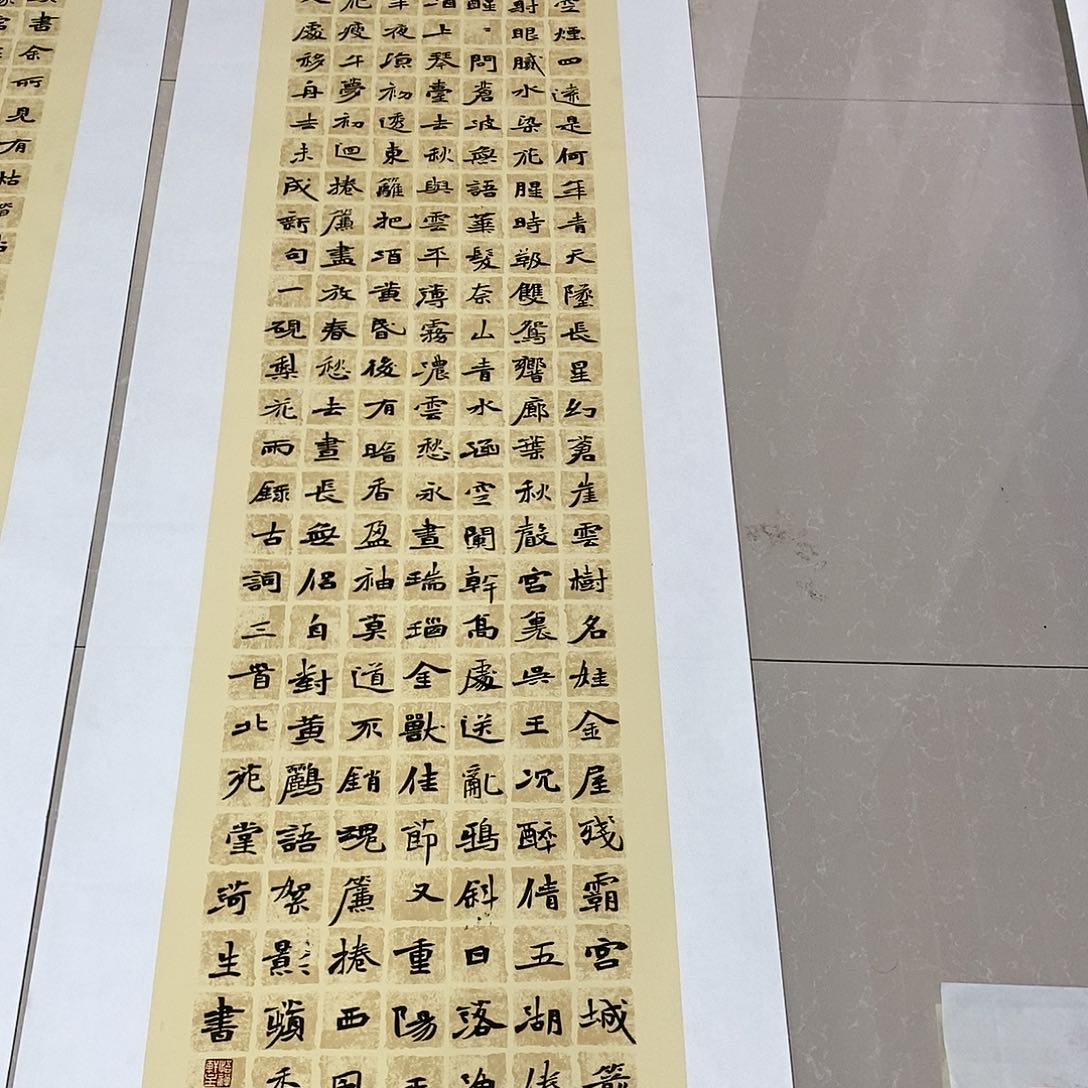 空煙四遠是何年青天墜長星幻蒼崖雲樹名娃金屋殘霸宮城箭
射眼膩水染花腥時靸雙鴛響廊葉秋聲宮裏吳王沉醉倩五湖倦
醒：問蒼波無語華髮奈山青水涵空闌幹高處送亂鴉斜日落漁
上琴臺去秋與雲平薄霧濃雲愁永晝瑞瑙金獸佳節又重陽玉
半夜涼初透東籬把酒黃昏後有暗香盈袖莫道不銷魂簾捲西風
花瘦午夢初迴捲簾盡放春愁去晝長無侶自對黃鸝語絮影蘋香
處移舟去未成新句一硯梨花雨錄古詞三首北苑堂生書
書余所見有枯